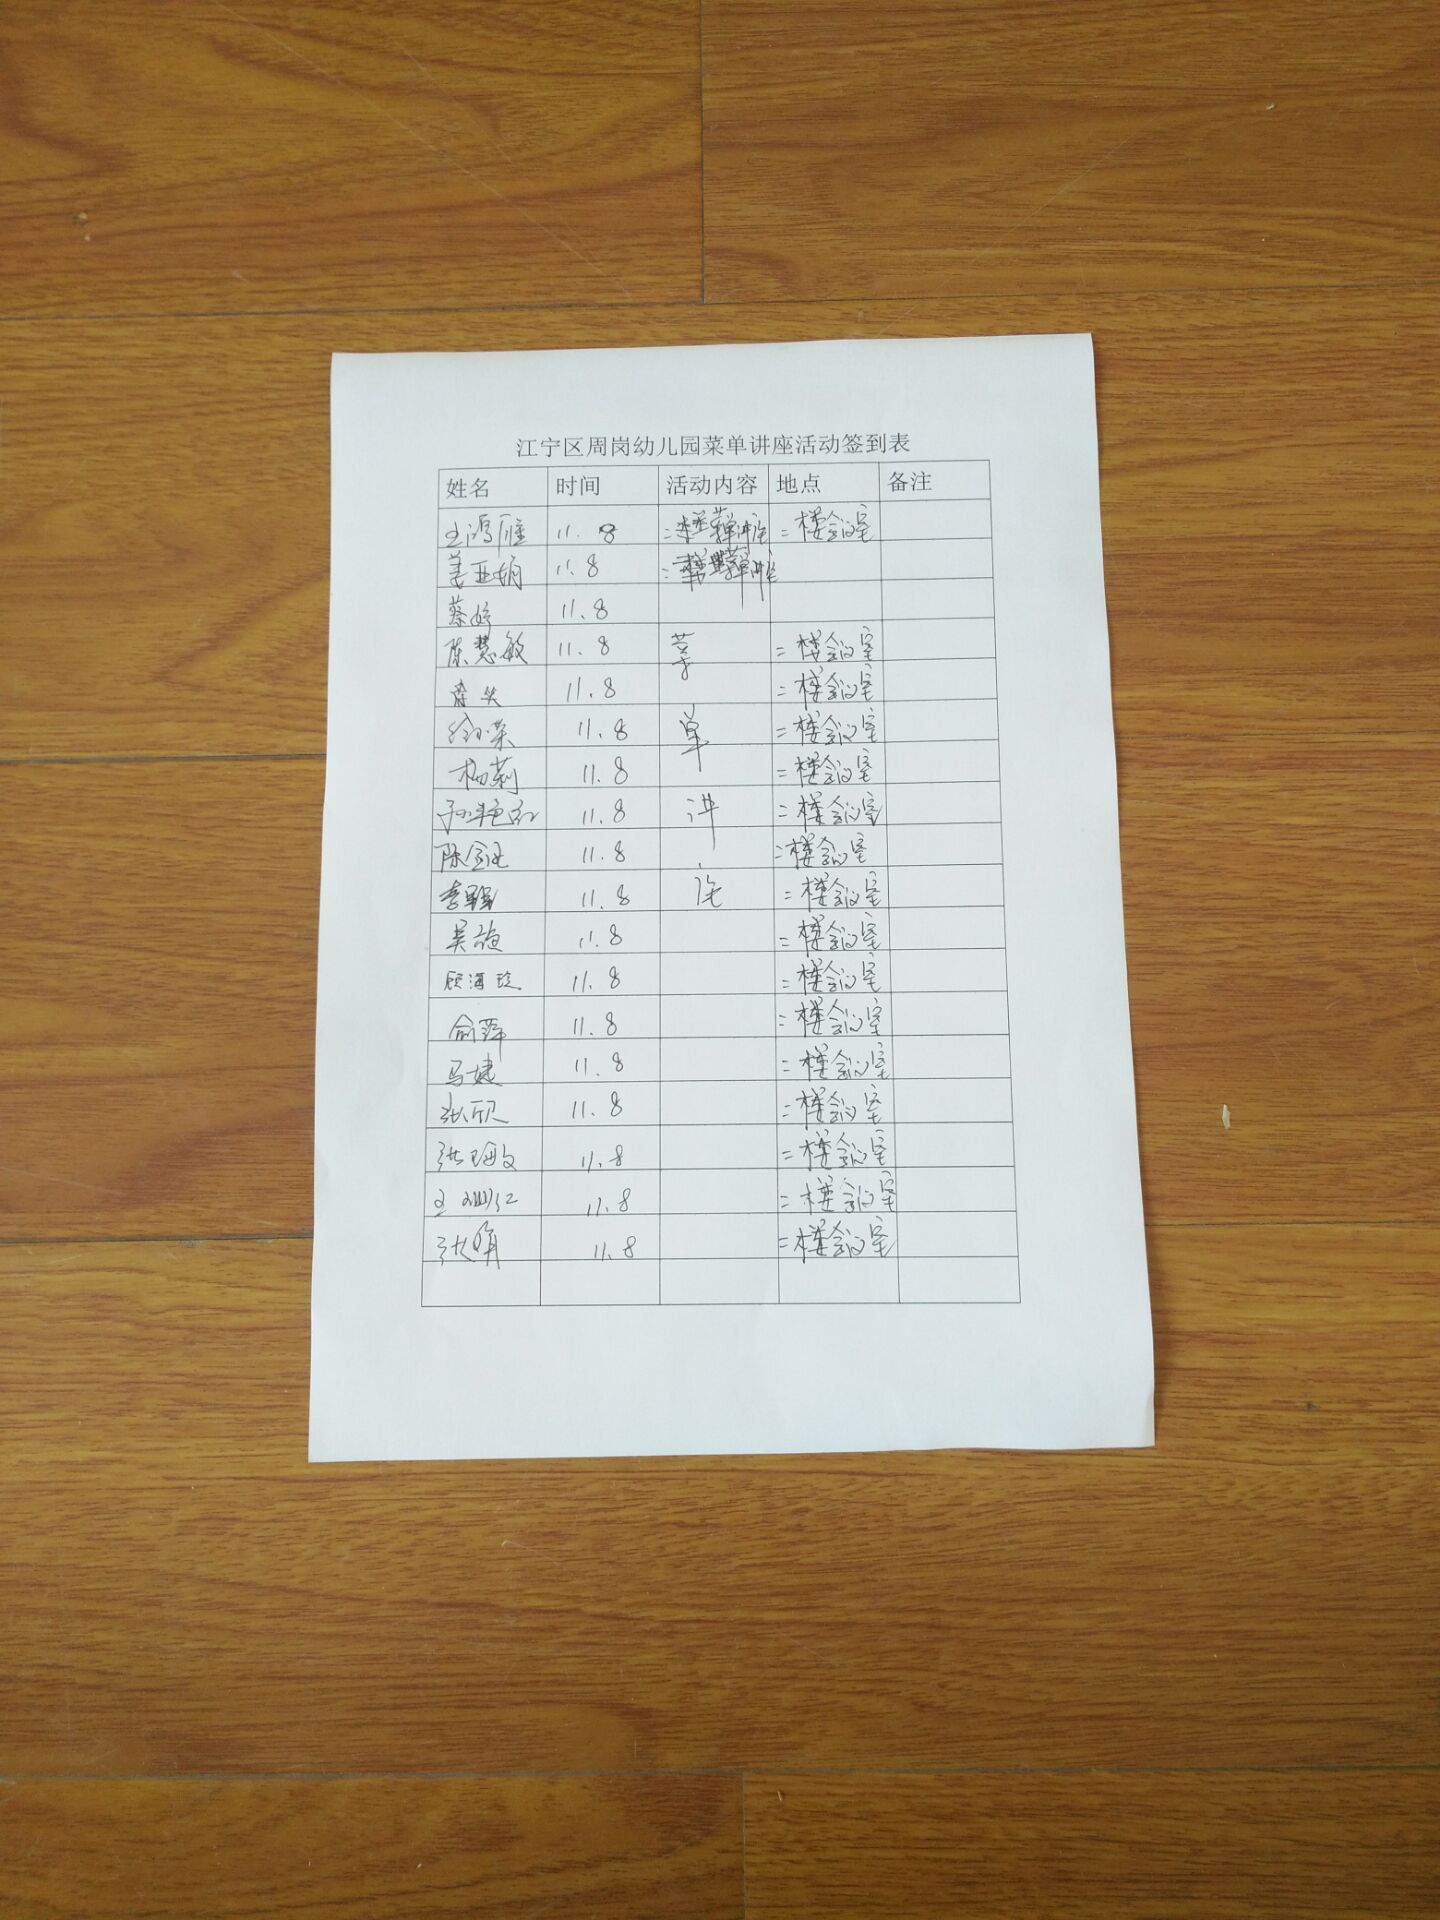 江宁区周岗幼儿园菜单讲座活动签到表
姓名 时间 活动内容 地点 备注
王鸿雁 11.8 菜单讲座 二楼会议室
姜亚娟 11.8 菜单讲座
蔡婷 11.8
陈慧敏 11.8 菜 二楼会议室
11.8 二楼会议室
11.8 单 二楼会议室
杨莉 11.8 二楼会议室
孙艳红 11.8 讲 二楼会议室
陈 11.8 二楼会议室
李 11.8 座 二楼会议室
吴 11.8 二楼会议室
顾海玲 11.8 二楼会议室
俞萍 11.8 二楼会议室
马婕 11.8 二楼会议室
张欣 11.8 二楼会议室
张 11.8 二楼会议室
王 11.8 二楼会议室
张 11.8 二楼会议室